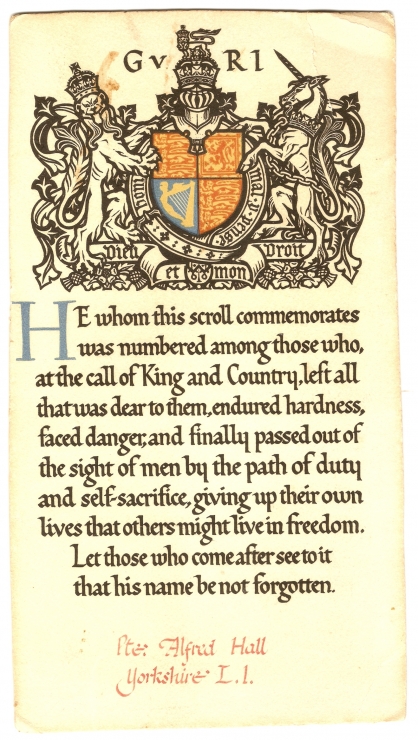 GV RI
Dieu et mon Droit
HE whom this scroll commemorates
was numbered among those who,
at the call of King and Country, left all
that was dear to them, endured hardness,
faced danger, and finally passed out of
the sight of men by the path of duty
and self-sacrifice, giving up their own
lives that others might live in freedom.
Let those who come after see to it
that his name be not forgotten.
Pte. Alfred Hall
Yorkshire L.I.